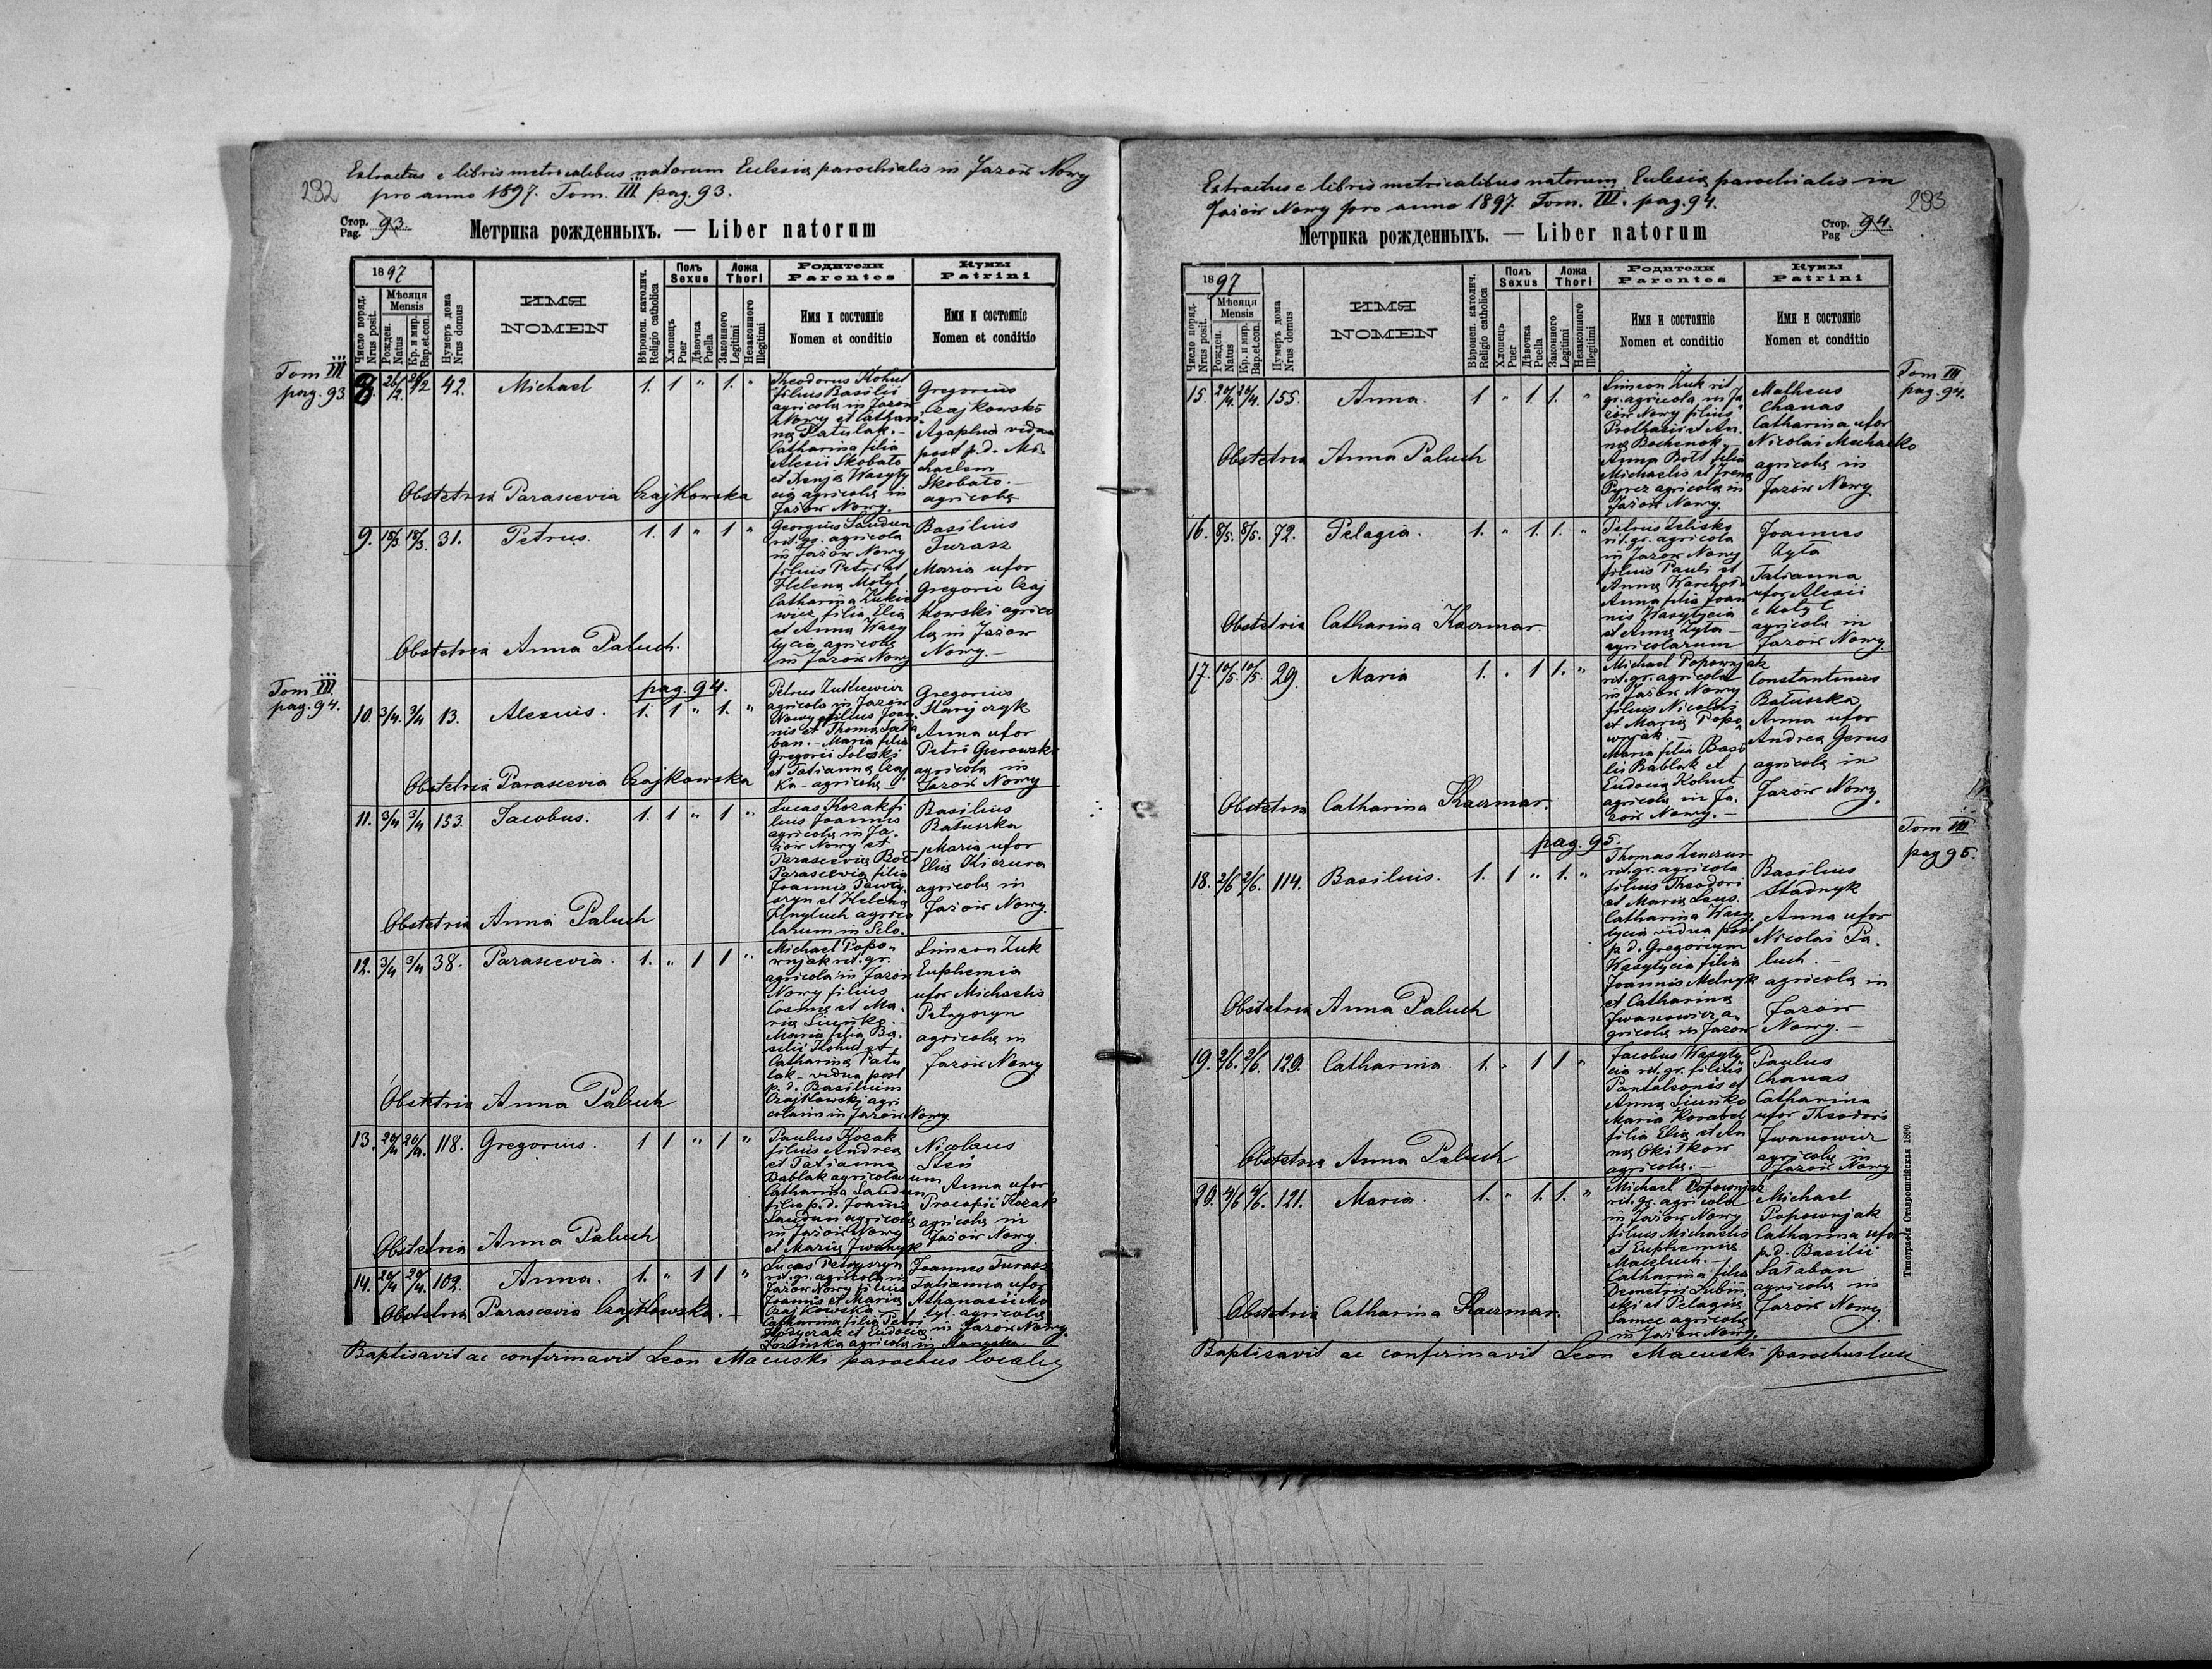 282
Extractus e libris metricalibus natorum Eclesiæ parochialis in Jazów Nowy
pro anno 1897. Tom. III pag. 93.
Стор. Pag. 93.
Метрика рожденныхъ. — Liber natorum
1897
Число поряд. Nrus posit.
Мѣсяця Mensis
Рожден. Natus
Кр. и мир. Bap. et con.
Нумеръ дома Nrus domus
ИМЯ
NOMEN
Вѣроисп. католич. Religio catholica
Полъ Sexus
Хлопецъ Puer
Дѣвочка Puella
Ложа Thori
Законного Legitimi
Незаконного Illegitimi
Родители
Parentes
Имя и состояніе
Nomen et conditio
Кумы
Patrini
Имя и состояніе
Nomen et conditio
Tom III
pag. 93
8. 26/2. 42. Michael 1. 1 " 1. "
Theodorus Kohut
filius Basilii
agricola in Jazów
Nowy et Cathari
na Patulak. —
Catharina filia
Alexii Skobato
et Xenia Wasyly
cia agricola in
Jazów Nowy.
Gregorius
Czajkowski
Agaphia vidua
post p. d. Mi
chaelem
Skobato. —
agricola
Obstetrix Parascevia Czajkowska
9. 15/3. 15/3. 31. Petrus. 1. 1 " 1 "
Georgius Saudun
rit. gr. agricola
in Jazów Nowy
filius Petri et
Helena Motyl
Catharina Zukie
wicz filia Elia
et Anna Wasy
lycia agricola
in Jazów Nowy
Basilius
Turasz
Maria uxor
Gregorii Czaj
kowski agrico
la in Jazów
Nowy. —
Obstetrix Anna Paluch.
Tom III.
pag. 94.
pag. 94.
10. 3/4. 3/4 13. Alexius. 1. 1 " 1. "
Petrus Zukiewicz
agricola in Jazów
Nowy filius Joan
nis et Thoma Sata
ban. — Maria filia
Gregorii Soloski
et Tatianna Czaj
ka — agricola
Gregorius
Starijczyk
Anna uxor
Petri
agricola in
Jazów Nowy
Obstetrix Parascevia Czajkowska
11. 3/4 3/4 153. Jacobus. 1. 1 " 1 "
Lucas Kozak fi
lius Joannis
agricola in Ja
zów Nowy et
Parascevia Bołt
Parascevia filia
Joannis Pawly
szyn et Helena
Hnyluch agrico
larum in Selo.
Basilius
Batuszka
Maria uxor
Elia Kiczura
agricola in
Jazów Nowy.
Obstetrix Anna Paluch
12. 3/4 3/4 38. Parascevia. 1. " 1 1 "
Michael Popo
wnjak rit. gr.
agricola in Jazów
Nowy filius
Cosma et Ma
ria Siuńko. —
Maria filia Ba
silii Kohut et
Catharina Patu
lak — vidua post
p. d. Basilium
Czajkowski agri
colam in Jazów Nowy.
Simeon Zuk
Euphemia
uxor Michaelis
Petryszyn
agricola in
Jazów Nowy
Obstetrix Anna Paluch
13. 20/4 20/4. 118. Gregorius. 1 1 " 1 "
Paulus Kozak
filius Andrea
et Tatianna
Bablak agricolarum
Catharina Saudun
filia p. d. Joannis
Saudun agricola
in Jazów Nowy
et Maria Jwanyk
Nicolaus
Steń
Anna uxor
Procopii Kozak
agricola in
Jazów Nowy.
Obstetrix Anna Paluch
14. 20/4 20/4. 102. Anna. 1. " 1 1 "
Lucas Petryszyn
rit. gr. agricola in
Jazów Nowy filius
Joannis et Maria
Czajkowska —
Catharina filia Petri
et Eudocia
agricola in
Joannes Turasz
Tatianna uxor
Athanasii Mo
tyl agricola
in Jazów Nowy.
Obstetrix Parascevia Czajkowska. —
Baptisavit ac confirmavit Leon Macuski parochus localis
283
Extractus e libris metricalibus natorum Eclesiæ parochialis in
Jazów Nowy pro anno 1897. Tom. III. pag. 94.
Стор. Pag 94.
Метрика рожденныхъ. — Liber natorum
1897
Число поряд. Nrus posit.
Мѣсяця Mensis
Рожден. Natus
Кр. и мир. Bap. et con.
Нумеръ дома Nrus domus
ИМЯ
NOMEN
Вѣроисп. католич. Religio catholica
Полъ Sexus
Хлопецъ Puer
Дѣвочка Puella
Ложа Thori
Законного Legitimi
Незаконного Illegitimi
Родители
Parentes
Имя и состояніе
Nomen et conditio
Кумы
Patrini
Имя и состояніе
Nomen et conditio
Tom III
pag. 94.
15. 20/4. 20/4. 155. Anna. 1 " 1. 1. "
Simeon Zuk rit.
gr. agricola in Ja
zów Nowy filius
Prothasii et An
na Bochenok. —
Anna Bołt filia
Michaelis et Irena
Pyrcz agricola in
Jazów Nowy.
Matheus
Chanas
Catharina uxor
Nicolai Michalko
agricola in
Jazów Nowy.
Obstetrix Anna Paluch
16. 8/5. 8/5. 72. Pelagia. 1. " 1. 1. "
Petrus Zelisko
rit. gr. agricola
in Jazów Nowy
filius Pauli et
Anna Warchoła
Anna filia Joan
nis Wasylycia
et Anna Zyla —
agricolarum
Joannes
Zyla
Tatianna
uxor Alexii
Motyl
agricola in
Jazów Nowy.
Obstetrix Catharina Kaczmar.
17. 10/5. 10/5. 29. Maria 1. " 1 1. "
Michael Popownjak
rit. gr. agricola
in Jazów Nowy
filius Nicolai
et Maria Popo
wnjak. —
Maria filia Basi
lii Bablak et
Eudocia Kohut
agricola in Ja
zów Nowy. —
Constantinus
Batuszka
Anna uxor
Andrea Gerus
agricola in
Jazów Nowy.
Obstetrix Catharina Kaczmar.
Tom III
pag 95.
pag. 95.
18. 2/6 2/6. 114. Basilius. 1. 1 " 1. "
Thomas Zenczur
rit. gr. agricola
filius Theodori
et Maria Seus.
Catharina Wasy
lycia vidua post
p. d. Gregorium
Wasylycia filia
Joannis Melnyk
et Catharina
Jwanowicz a
gricola in Jazów
Basilius
Stadnyk
Anna uxor
Nicolai Pa
luch. —
agricola in
Jazów
Nowy. —
Obstetrix Anna Paluch
19. 2/6. 2/6. 129. Catharina. 1. " 1 1 "
Jacobus Wasyly
cia rit. gr. filius
Pantaleonis et
Anna Siuńko
Maria Korabel
filia Elia et An
na Okitkow
agricola. —
Paulus
Chanas
Catharina
uxor Theodori
Jwanowicz
agricola in
Jazów Nowy
Obstetrix Anna Paluch
20. 4/6 4/6. 121. Maria. 1. " 1. 1. "
Michael Popownjak
rit. gr. agricola
in Jazów Nowy
filius Michaelis
et Euphemia
Maceluch. —
Catharina filia
Demetrii Lubin
ski et Pelagia
Samec agricola
in Jazów Nowy.
Michael
Popownjak
Catharina uxor
p. d. Basilii
Sataban
agricola in
Jazów Nowy.
Obstetrix Catharina Kaczmar.
Baptisavit ac confirmavit Leon Macuski parochus loci
Типографія Ставропигійская 1890.